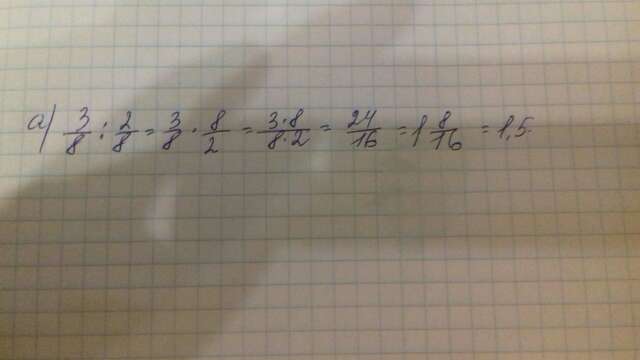 а) 3/8 : 2/8 = 3/8 · 8/2 = 3·8/8·2 = 24/16 = 1 8/16 = 1,5.